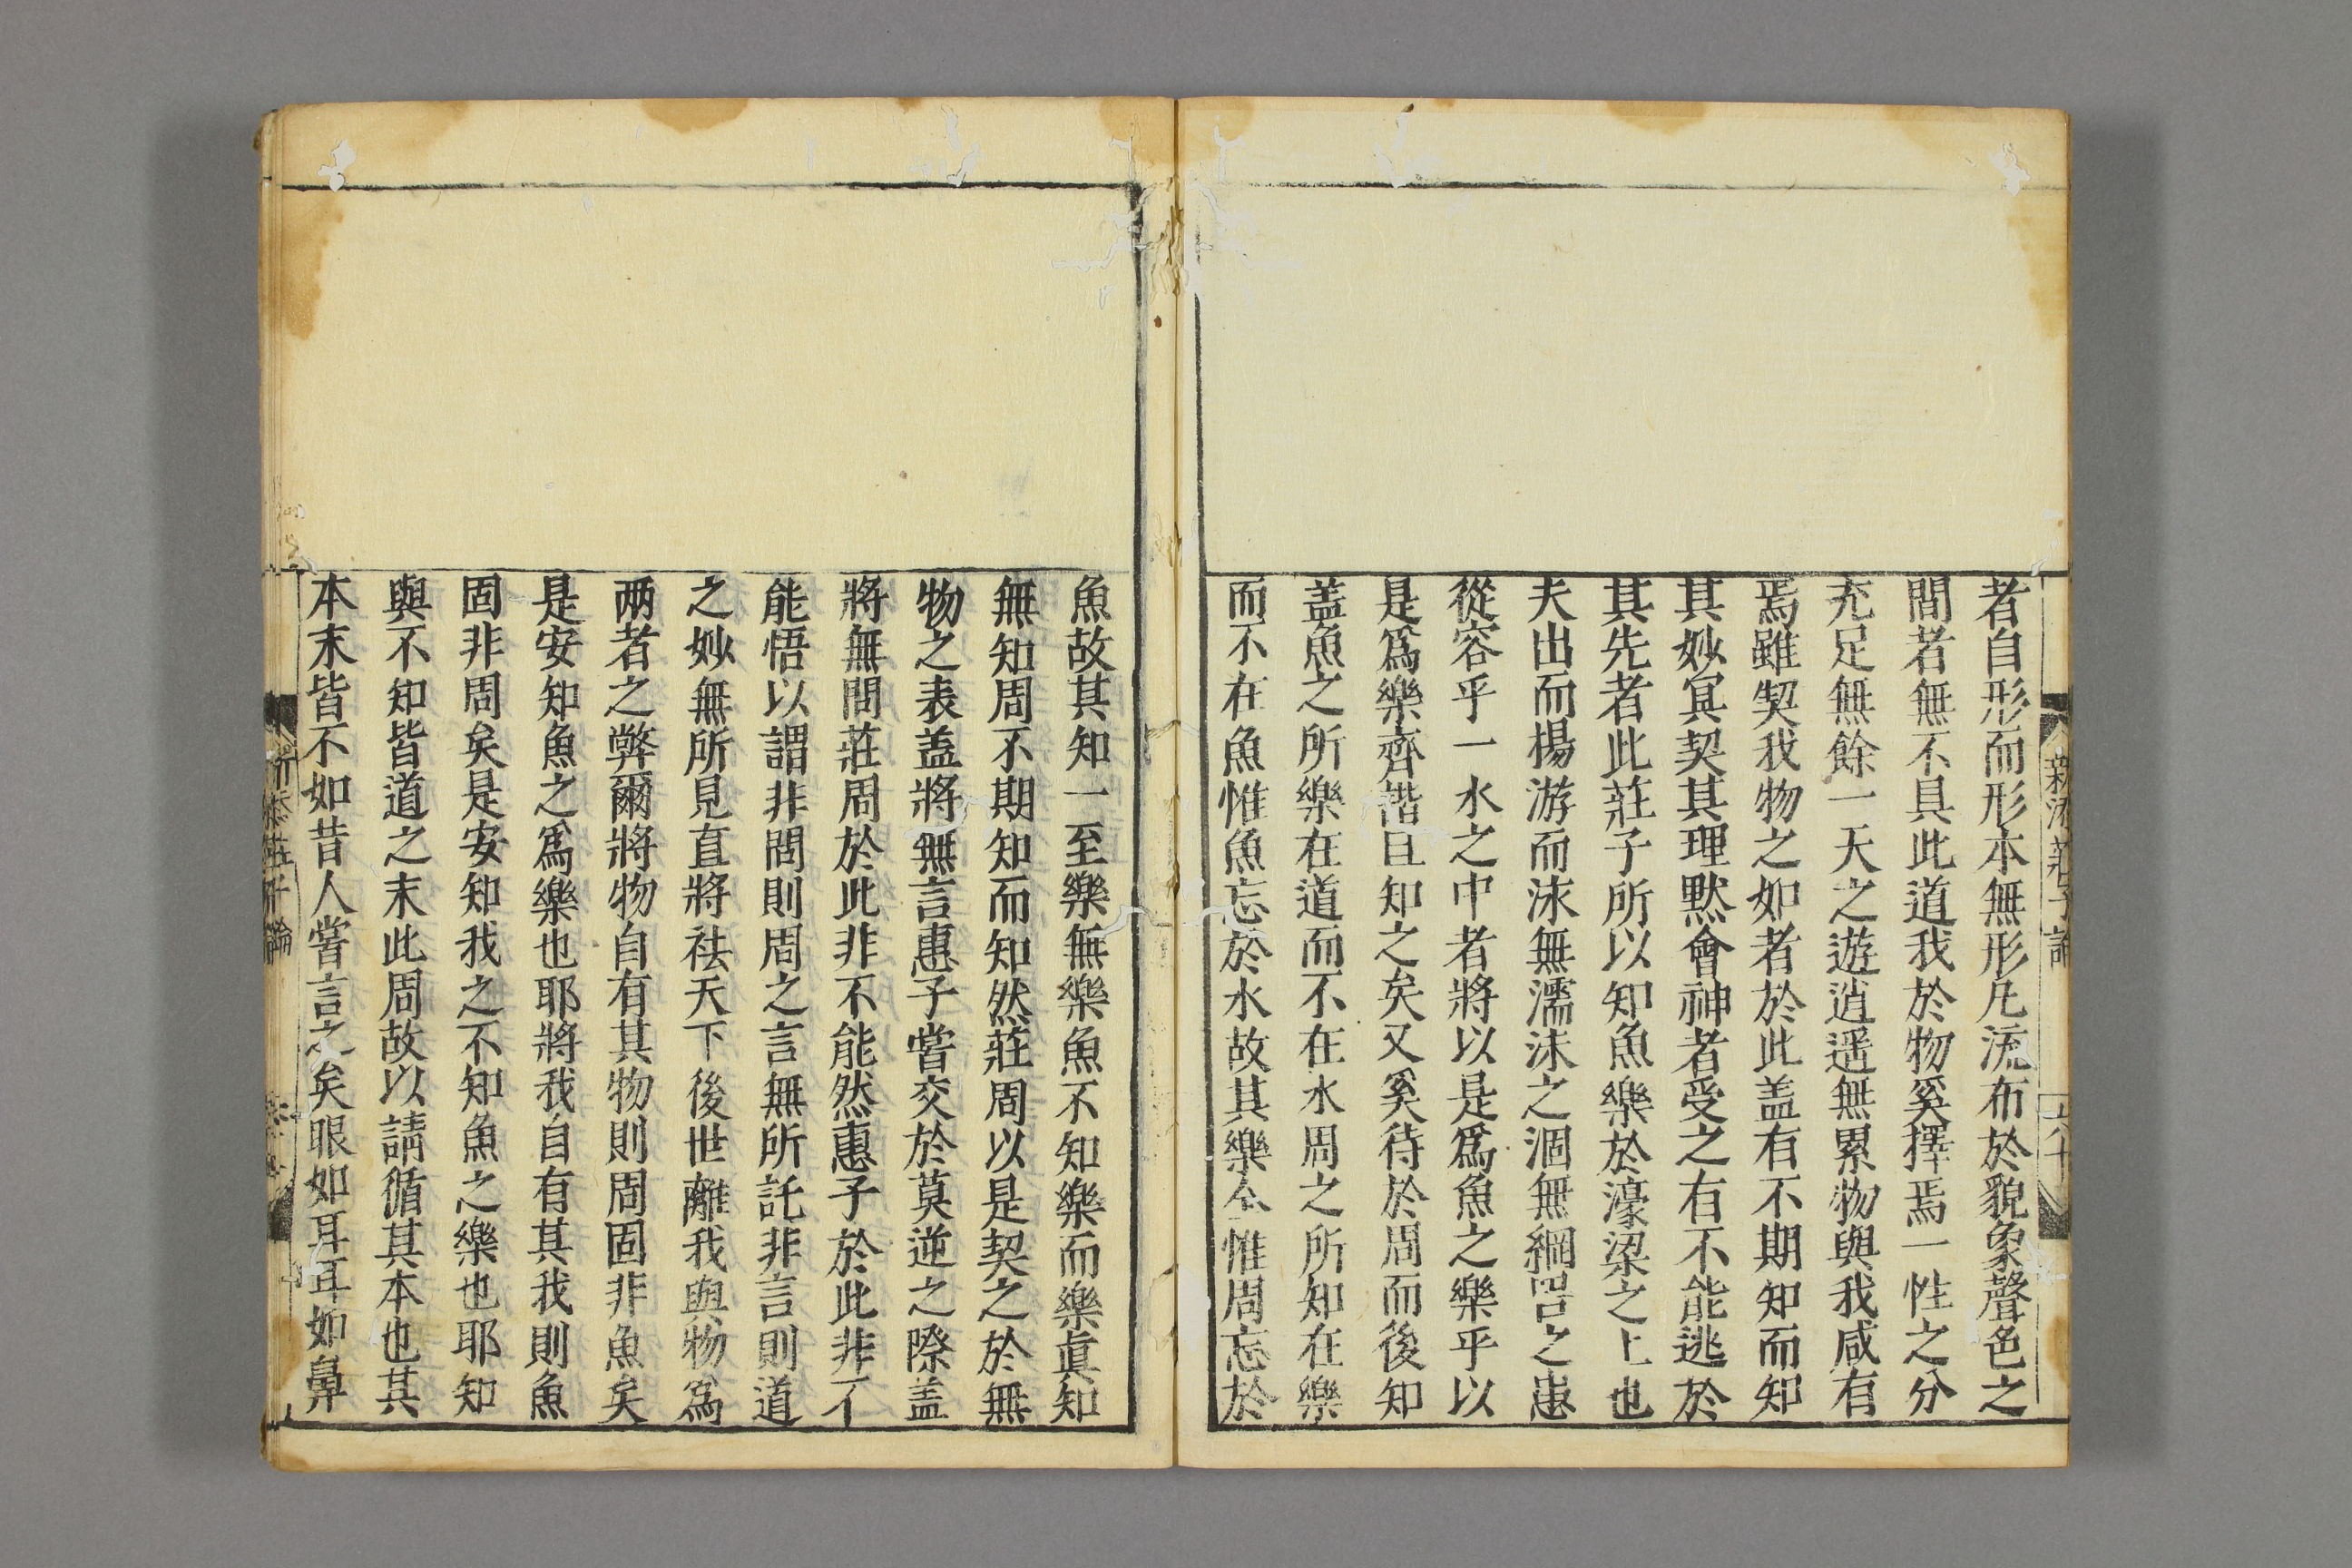 者自形而形本無形凡流布於貌象聲色之
間者無不具此道我於物奚擇焉一性之分
充足無餘一天之遊逍遥無累物與我咸有
焉雖契我物之如者於此盖有不期知而知
其妙冥契其理黙會神者受之有不能逃於
其先者此莊子所以知魚樂於濠梁之上也
夫出而揚游而沫無濡沫之涸無綱罟之患
從容乎一水之中者將以是爲魚之樂乎以
是爲樂齊諧且知之矣又奚待於周而後知
盖魚之所樂在道而不在水周之所知在樂
而不在魚惟魚忘於水故其樂全惟周忘於
魚故其知一至樂無樂魚不知樂而樂眞知
無知周不期知而知然莊周以是契之於無
物之表盖將無言惠子嘗交於莫逆之際盖
將無問莊周於此非不能然惠子於此非不
能悟以謂非問則周之言無所託非言則道
之妙無所見直將祛天下後世離我與物爲
兩者之弊爾將物自有其物則周固非魚矣
是安知魚之爲樂也耶將我自有其我則魚
固非周矣是安知我之不知魚之樂也耶知
與不知皆道之末此周故以請循其本也其
本末皆不如昔人嘗言之矣眼如耳耳如鼻